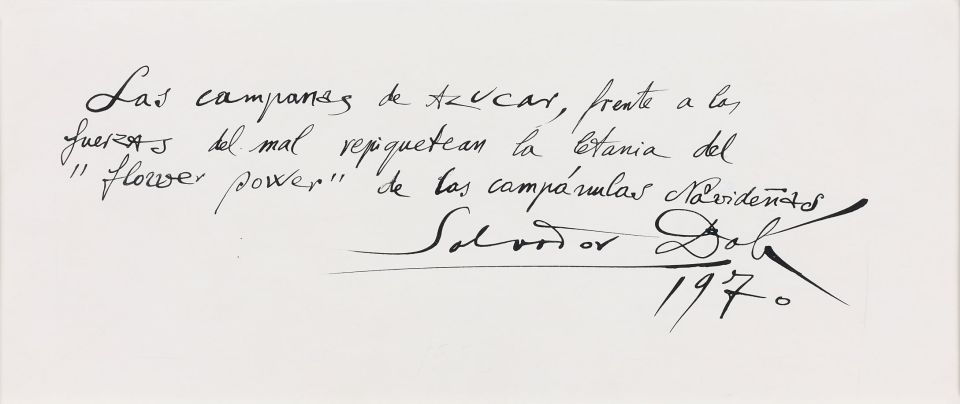 Las campanas de AZUCar, frente a las
fuerzas del mal repiquetean la letania del
"flower power" de las campánulas Navideñas
Salvador Dalí
1970